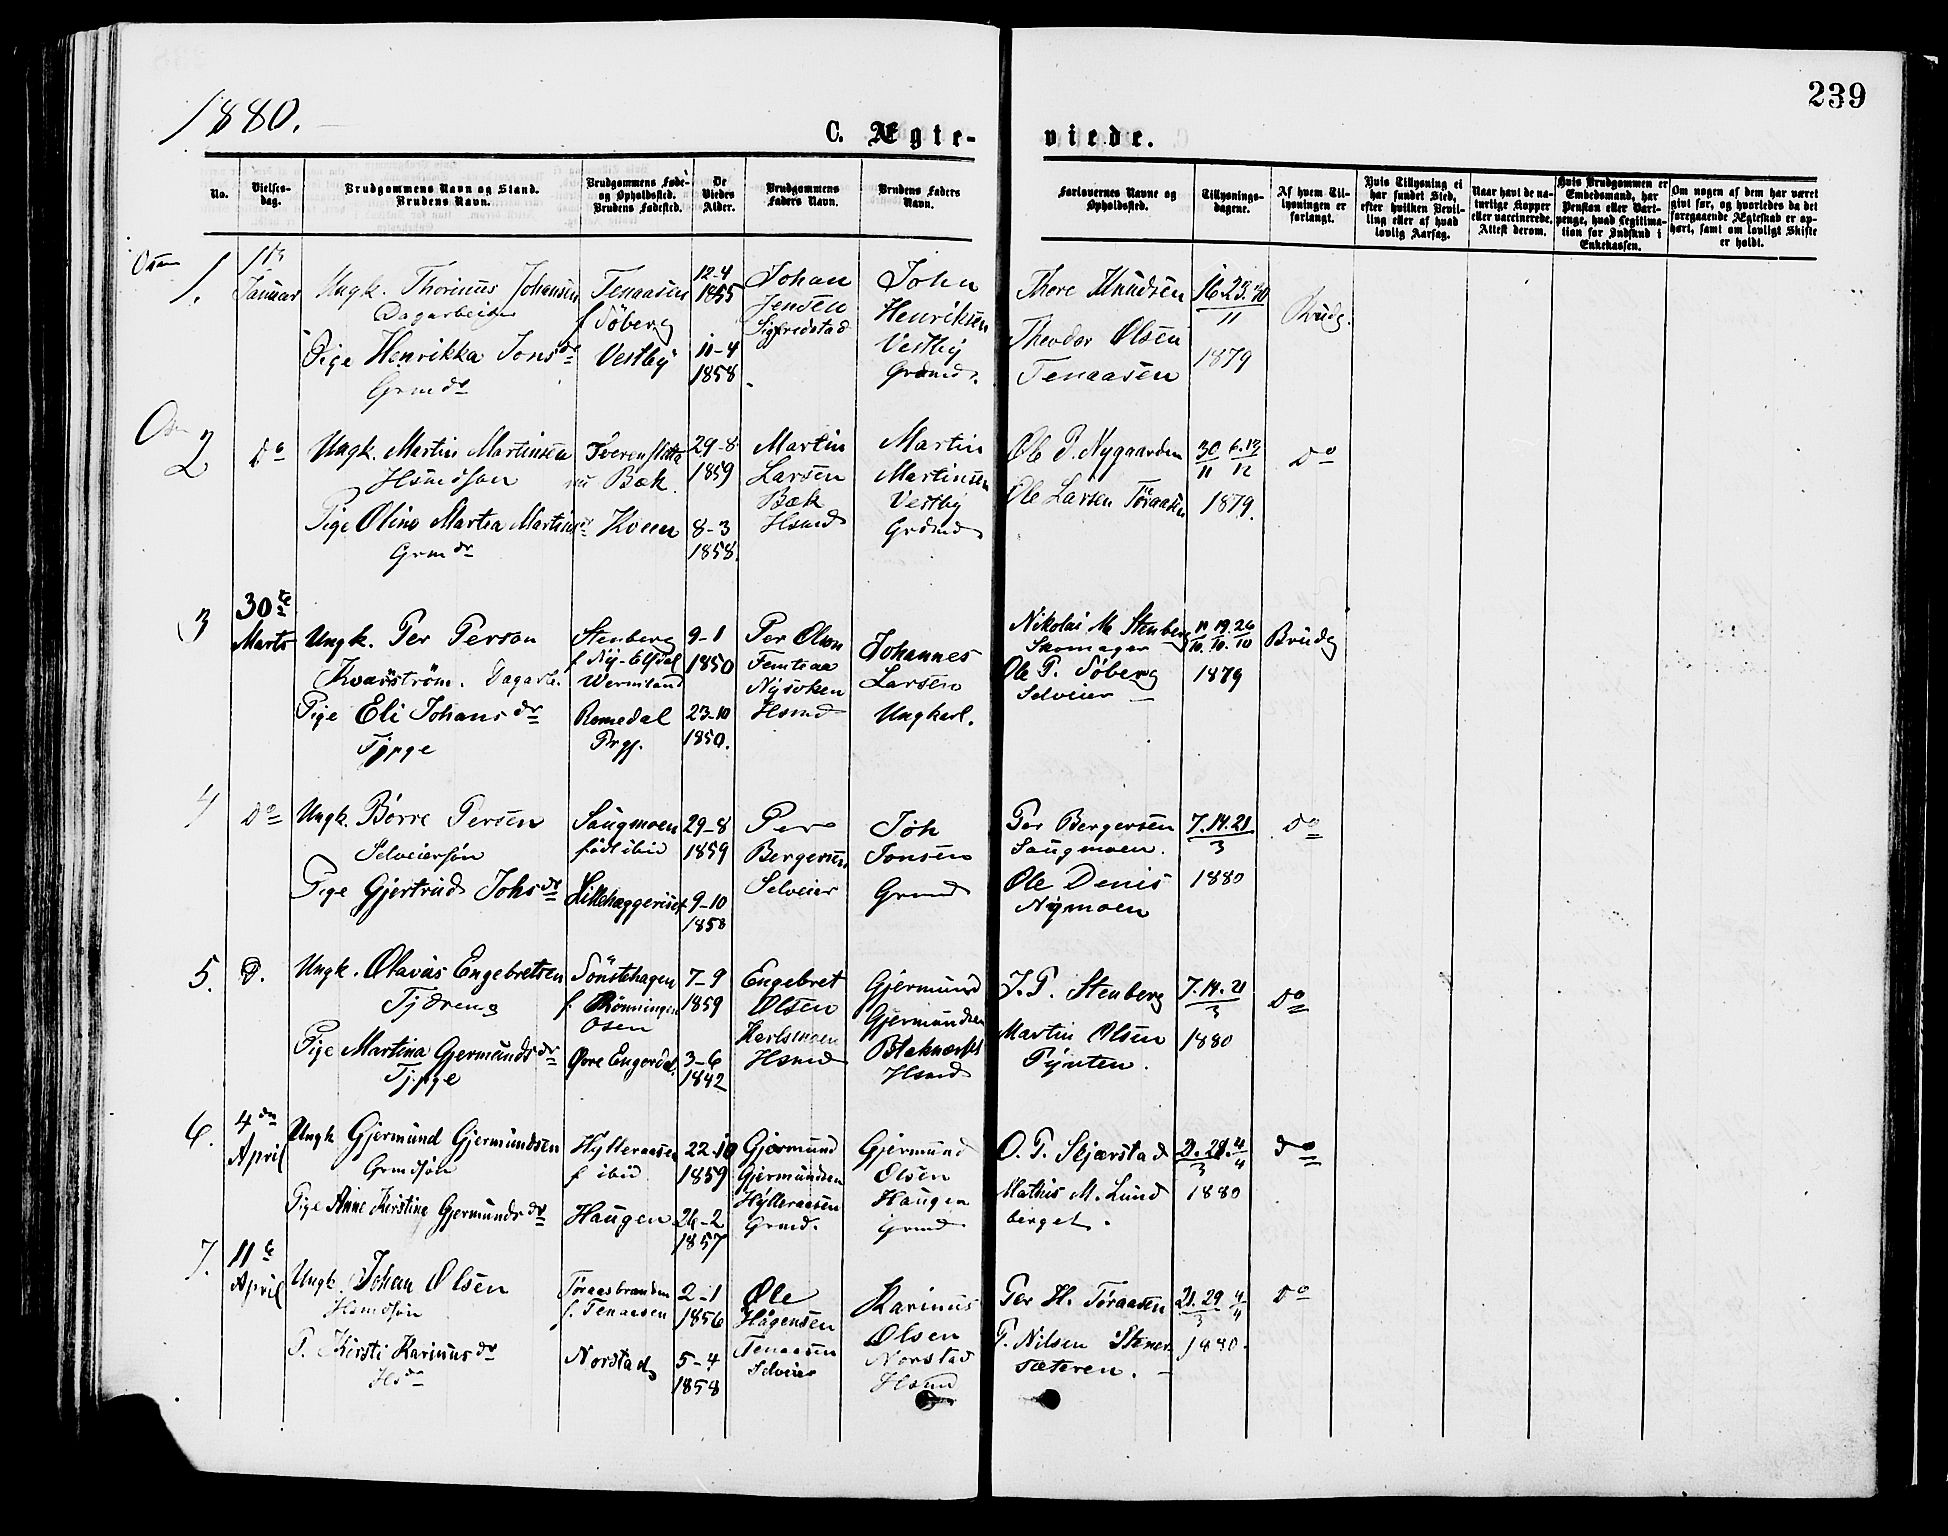 239
1880.
C. Ægte-
viede.
No.
Vielses-
dag.
Brudgommens Navn og Stand.
Brudens Navn.
Brudgommens Føde-
og Opholdssted.
Brudens Fødested.
De
Viedes
Alder.
Brudgommens
Faders Navn.
Brudens Faders
Navn.
Forlovernes Navne og
Opholdssted.
Tillysnings-
dagene.
Af hvem Til-
lysningen er
forlangt.
Hvis Tillysning ei
har fundet Sted,
efter hvilken Bevil-
ling eller af hvad
lovlig Aarsag.
Naar havt de na-
turlige Kopper
eller vaccinerede.
Attest derom.
Hvis Brudgommen er
Embedsmand, har
Pension eller Vart-
penge, hvad Legitima-
tion for Indskud i
Enkekassen.
Om nogen af dem har været
givt før, og hvorledes da det
foregaaende Ægteskab er op-
hørt, samt om lovligt Skifte
er holdt.
1.
Januar
Ungk. Thorinus Johansen
Dagarbeider
Pige Henrikka Jonsdr
Grmdr
Tenaasen
f Søberg
Vestby
12-4
1855
11-4
1858
Johan
Jensen
Sigfredstad
John
Henriksen
Vestby
Grdmd.
Thore Knudsen
Theodor Olsen
Tenaasen
16.23.30
11
1879
Brudg.
Osen
2
Do
Ungk. Martin Martinsen
Hsmdsøn
Pige Oline Martea Martinsdr
Grmdr
nu Bæk.
Kveen
29-8
1859
8-3
1858.
Martin
Larsen
Bæk
Hsmd
Martin
Martinsen
Vestby
Grdmd
Ole P. Nygaarden
Ole Larsen Tøraasen
30 6.13
11 12
1879.
Do
3
30te
Marts
Ungk. Per Person
Kvarström. Dagarb.
Pige Eli Johansdr
Tjpge
Stenberg
f Ny-Elfdal
Wermland
Romedal
Prgj.
9-1
1850
23-10
1850.
Per Olson
Femtaa
Nysoken
Hsmd
Johannes
Larsen
Ungkarl.
Nikolai M Stenberg
Skomager
Ole P. Søberg
Selveier
19. 26
10. 10
1879
Brudg
4
Do
Ungk. Børre Persen
Selveiersøn
Pige Gjertrud Johsdr
Saugmoen
født ibid
Lillehæggeriset
29-8
1859
9-10
1858
Per
Bergersen
Selveier
Joh
Jonsen
Grmd
Per Bergersen
Saugmoen.
Ole Denis
Nymoen
7.14.21
3
1880
Do
5.
D.
Ungk. Olavus Engebretsen
Tjdreng
Pige Martina Gjermundsdr
Tjpige
Sønstehagen
f. Rønningen
Osen
Øvre Engerdal.
7-9
1859
3-6
1842
Engebret
Olsen
Karlsmoen
Hsmd
Gjermund
Gjermundsen
Hsmd
J. P. Stenberg
Martin Olsen
Pynten.
7.14.21
3
1880
Do
6.
4de
April
Ungk Gjermund Gjermundsen
Grmdsøn
Pige Anne Kirstine Gjermundsdr
Hylleraasen
f ibid
Haugen
22-10
1859
26-2
1857
Gjermund
Gjermundsen
Hylleraasen
Grmd.
Gjermund
Olsen
Haugen
Grmd
O. P. Skjærstad
Mathis M. Lund
berget.
21. 28. 4
3 4
1880
do
7.
11te
April
Ungk. Johan Olsen
Hsmdsøn
P. Kirsti Karinusdr
Hsdr
Tøraasbranden
f. Tenaasen
Norstad
2-1
1856
5-4
1858
Ole
Hågensen
Tenaasen
Selveier
Karinus
Olsen
Norstad
Hsmd
Per H. Tøraasen
P. Nilsen Stener
sæteren.
21. 29 4
3 4
1880.
Do